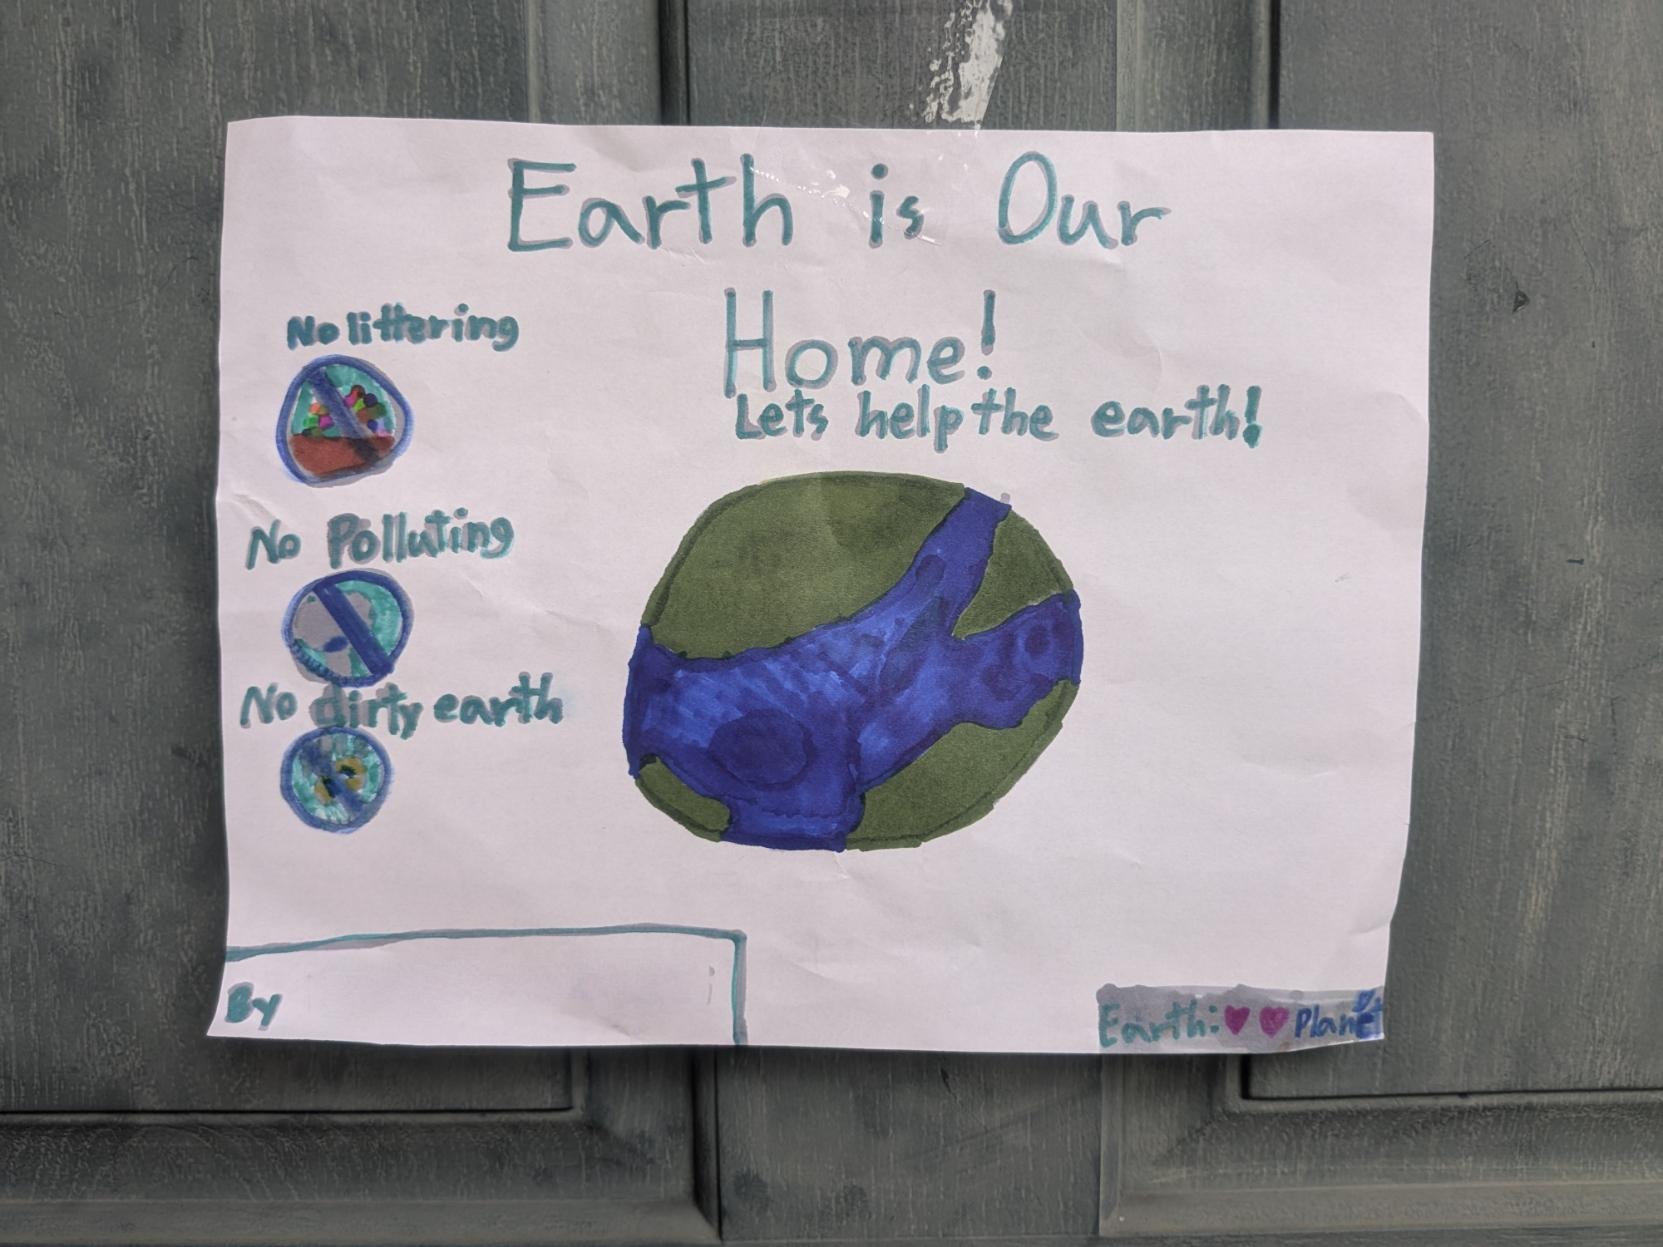 Earth is Our
Home!
Lets help the earth!
No littering
No Polluting
No dirty earth
By
Earth:♥ ♥ Planet